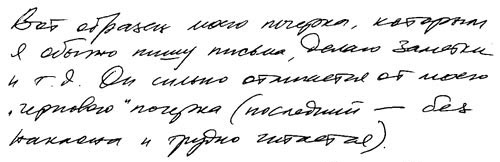 Вот образец моего почерка, которым
я обычно пишу письма, делаю заметки
и т.д. Он сильно отличается от моего
„чернового“ почерка (последний — без
наклона и трудно читается).